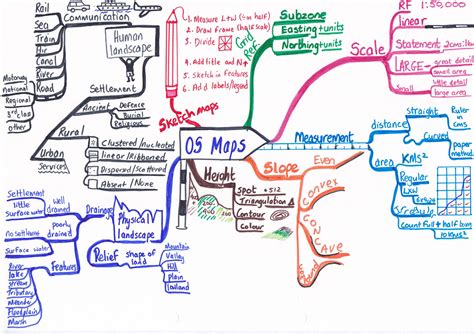 OS Maps
Sketch maps
1. Measure L+W (÷ in half)
2. Draw Frame (half scale)
3. Divide
4. Add title and N
5. Sketch in features
6. Add labels/legend
Grid
Ref
Subzone
Easting + units
Northing + units
Scale
RF 1:50,000
linear
Statement 2cms:1km
LARGE - great detail
small area
small detail
large area
Measurement
distance
straight
Ruler
Curved
paper
method
area
KMS²
Regular
LxW
Irregular
Count full + half
Slope
Even
Convex
CONCAVE
Height
Spot +512
Triangulation
Contour
Colour
Physical
landscape
Drainage
Well
drained
Settlement
little
Surface water
poorly
drained
no settlement
Surface water
Features
River
lake
stream
Tributary
Meander
Floodplain
Marsh
Relief
shape of
land
Mountain
Valley
Hill
plain
Human
landscape
Communication
Rail
Sea
Air
Road
national
Regional
3rd class
other
Settlement
Ancient
Defence
Burial
Religious
Rural
Clustered/nucleated
linear/Ribboned
Dispersed/Scattered
Absent/None
Urban
Services